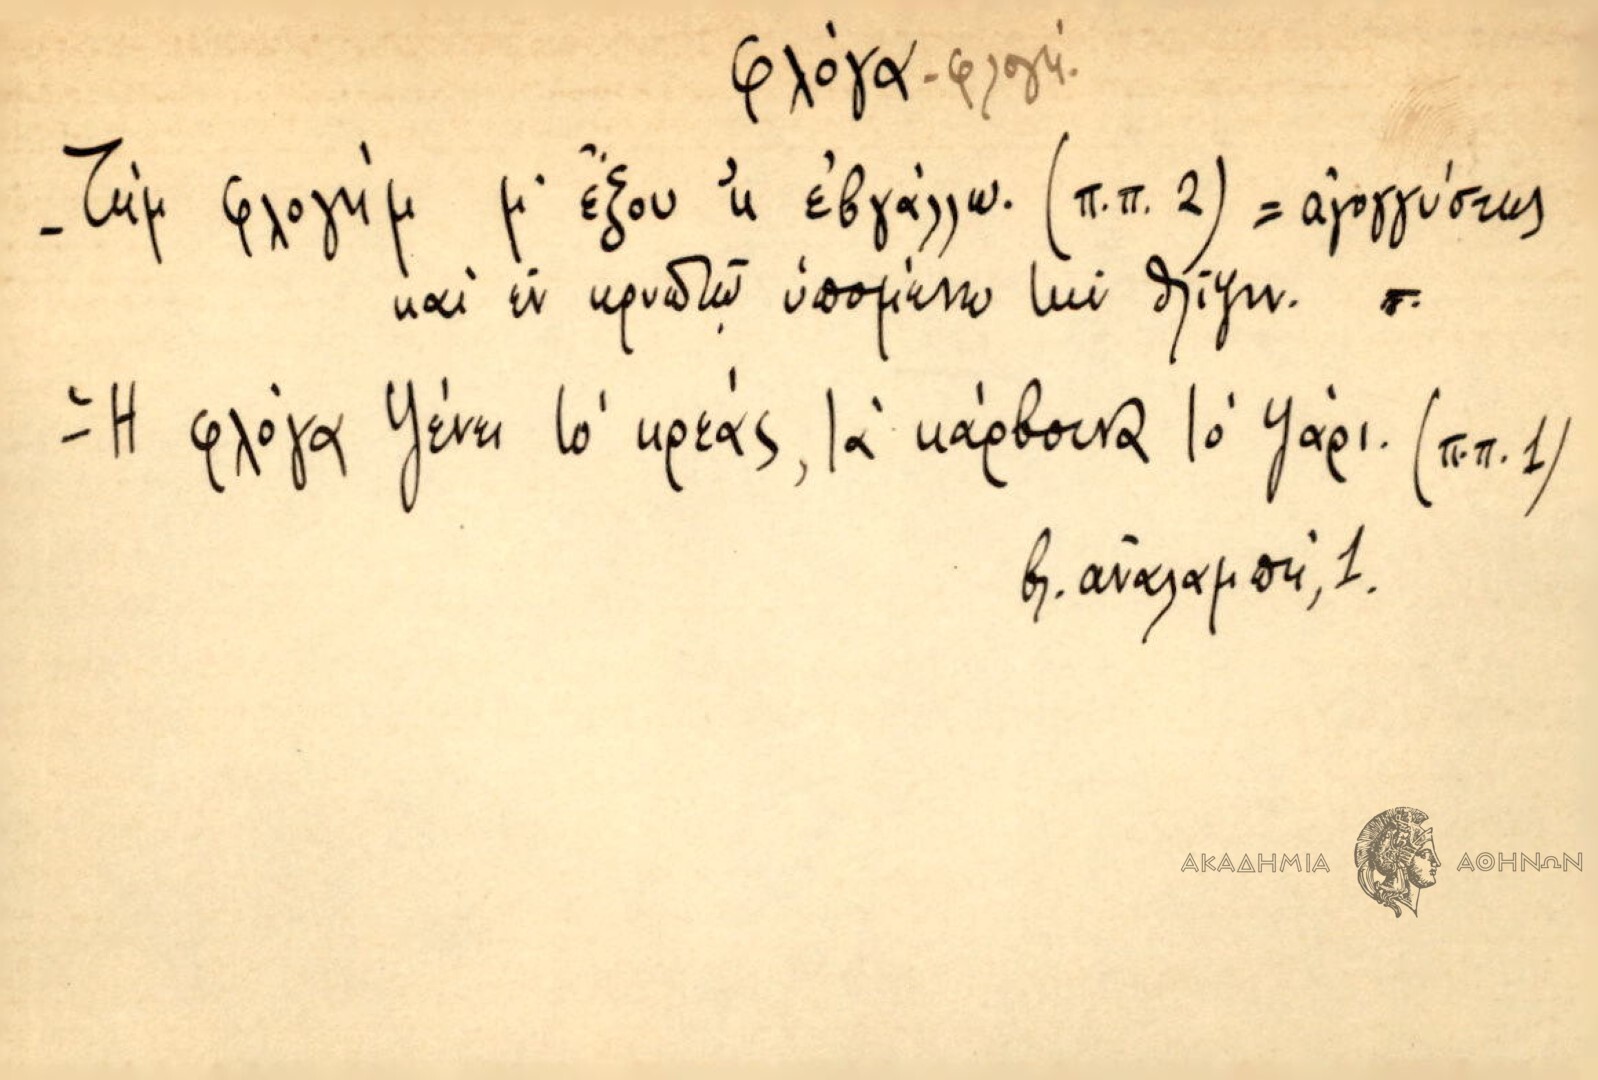 φλόγα - φλογή.
- Τὴμ φλογήμ μ' ἔξου 'κ ἐβγάλλω. (π.π. 2) = ἀγογγύστως
καὶ ἐν κρυπτῷ ὑπομένω τὴν θλῖψιν. π.
- Ἡ φλόγα ψένει τὸ κρεάς, τὰ κάρβουνα τὸ ψάρι. (π.π. 1)
βλ. ἀναλαμπή, 1.
ΑΚΑΔΗΜΙΑ ΑΘΗΝΩΝ